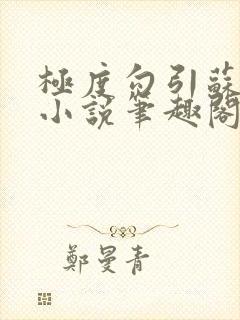 極度勾引蘇
小說筆趣閣
鄭曼青